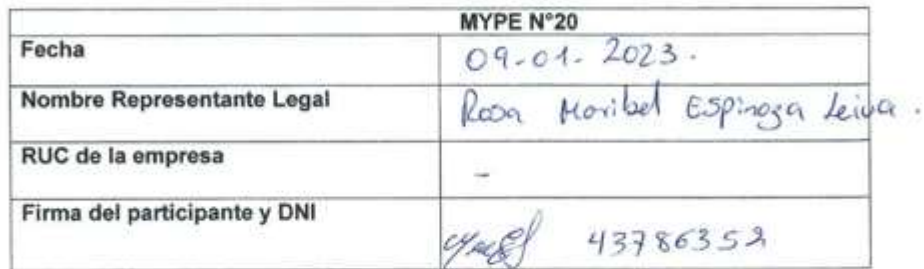 MYPE N°20
Fecha 09-01-2023.
Nombre Representante Legal Rosa Maribel Espinoza Leiva.
RUC de la empresa -
Firma del participante y DNI 43786352